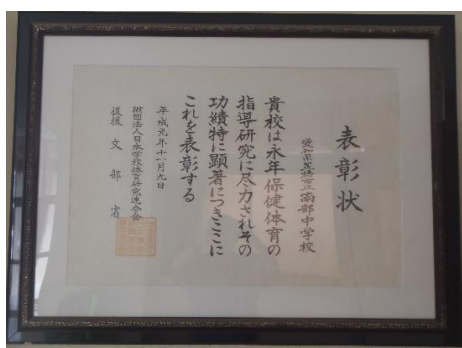 表彰状
愛知県豊橋市立南部中学校
貴校は永年保健体育の
指導研究に尽力されその
功績特に顕著につきここに
これを表彰する
平成元年十一月九日
財団法人日本学校体育研究連合会
後援 文部省